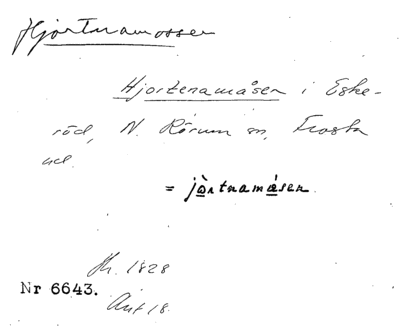 Hjortnamossen
Hjortenamåsen i Eske-
röd, N. Rörum sn, Frosta
hd.
= jòrtnamåsen.
Jh. 1828
Nr 6643.
Ant 18.